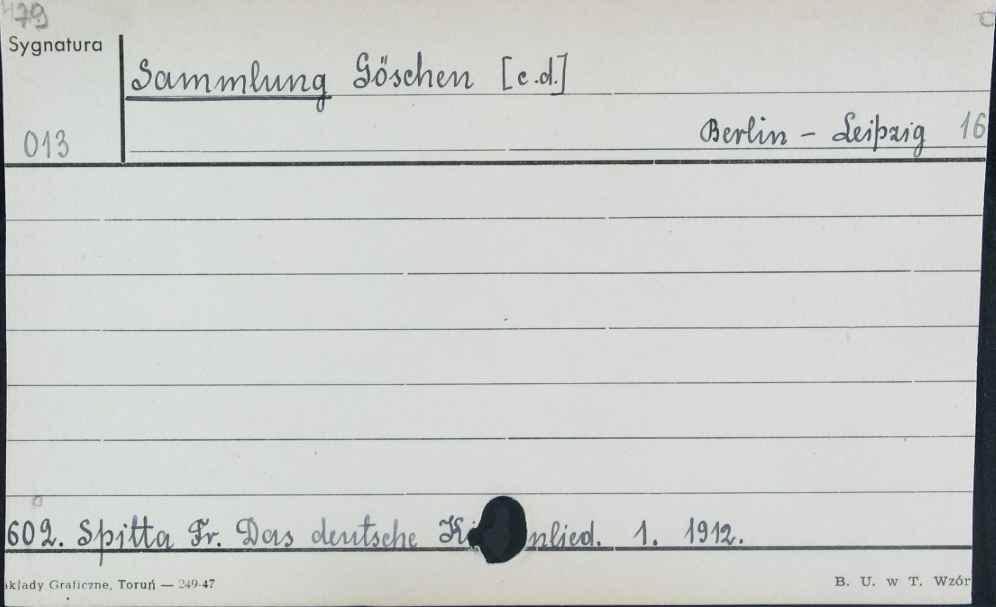 479
Sygnatura
Sammlung Göschen [c.d.]
Berlin - Leipzig 16
013
602. Spitta Fr. Das deutsche Ki nlied. 1. 1912.
akłady Graficzne, Toruń — 249-47
B. U. w T. Wzór